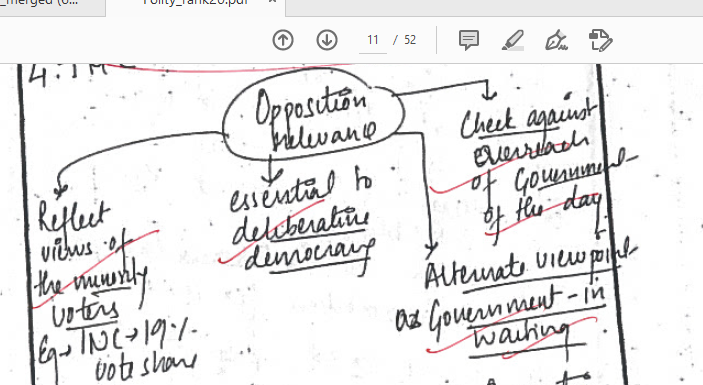 _merged (6...
Polity_rank20.pdf
11 / 52
Opposition
relevance
Check against
overreach
of Government
of the day
essential to
deliberative
democracy
Reflect
views of
the minority
voters
Eg→ INC→19%
vote share
Alternate viewpoint
as Government-in
waiting